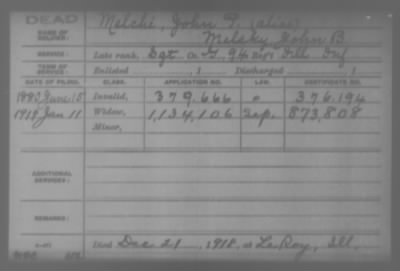 DEAD
Melchi, John P. (alias)
NAME OF SOLDIER:
Melsky, John B.
SERVICE:
Late rank, Sgt Co. G, 94 Reg't Ill Inf
TERM OF SERVICE:
Enlisted , 1 Discharged , 1
DATE OF FILING. CLASS. APPLICATION NO. LAW. CERTIFICATE NO.
1880 June 15 Invalid, 379,666 " 376,194
1919 Jan 11 Widow, 1,134,106 873,808
Minor,
ADDITIONAL SERVICES:
REMARKS:
Died Dec 21, 1918, at LeRoy, Ill.